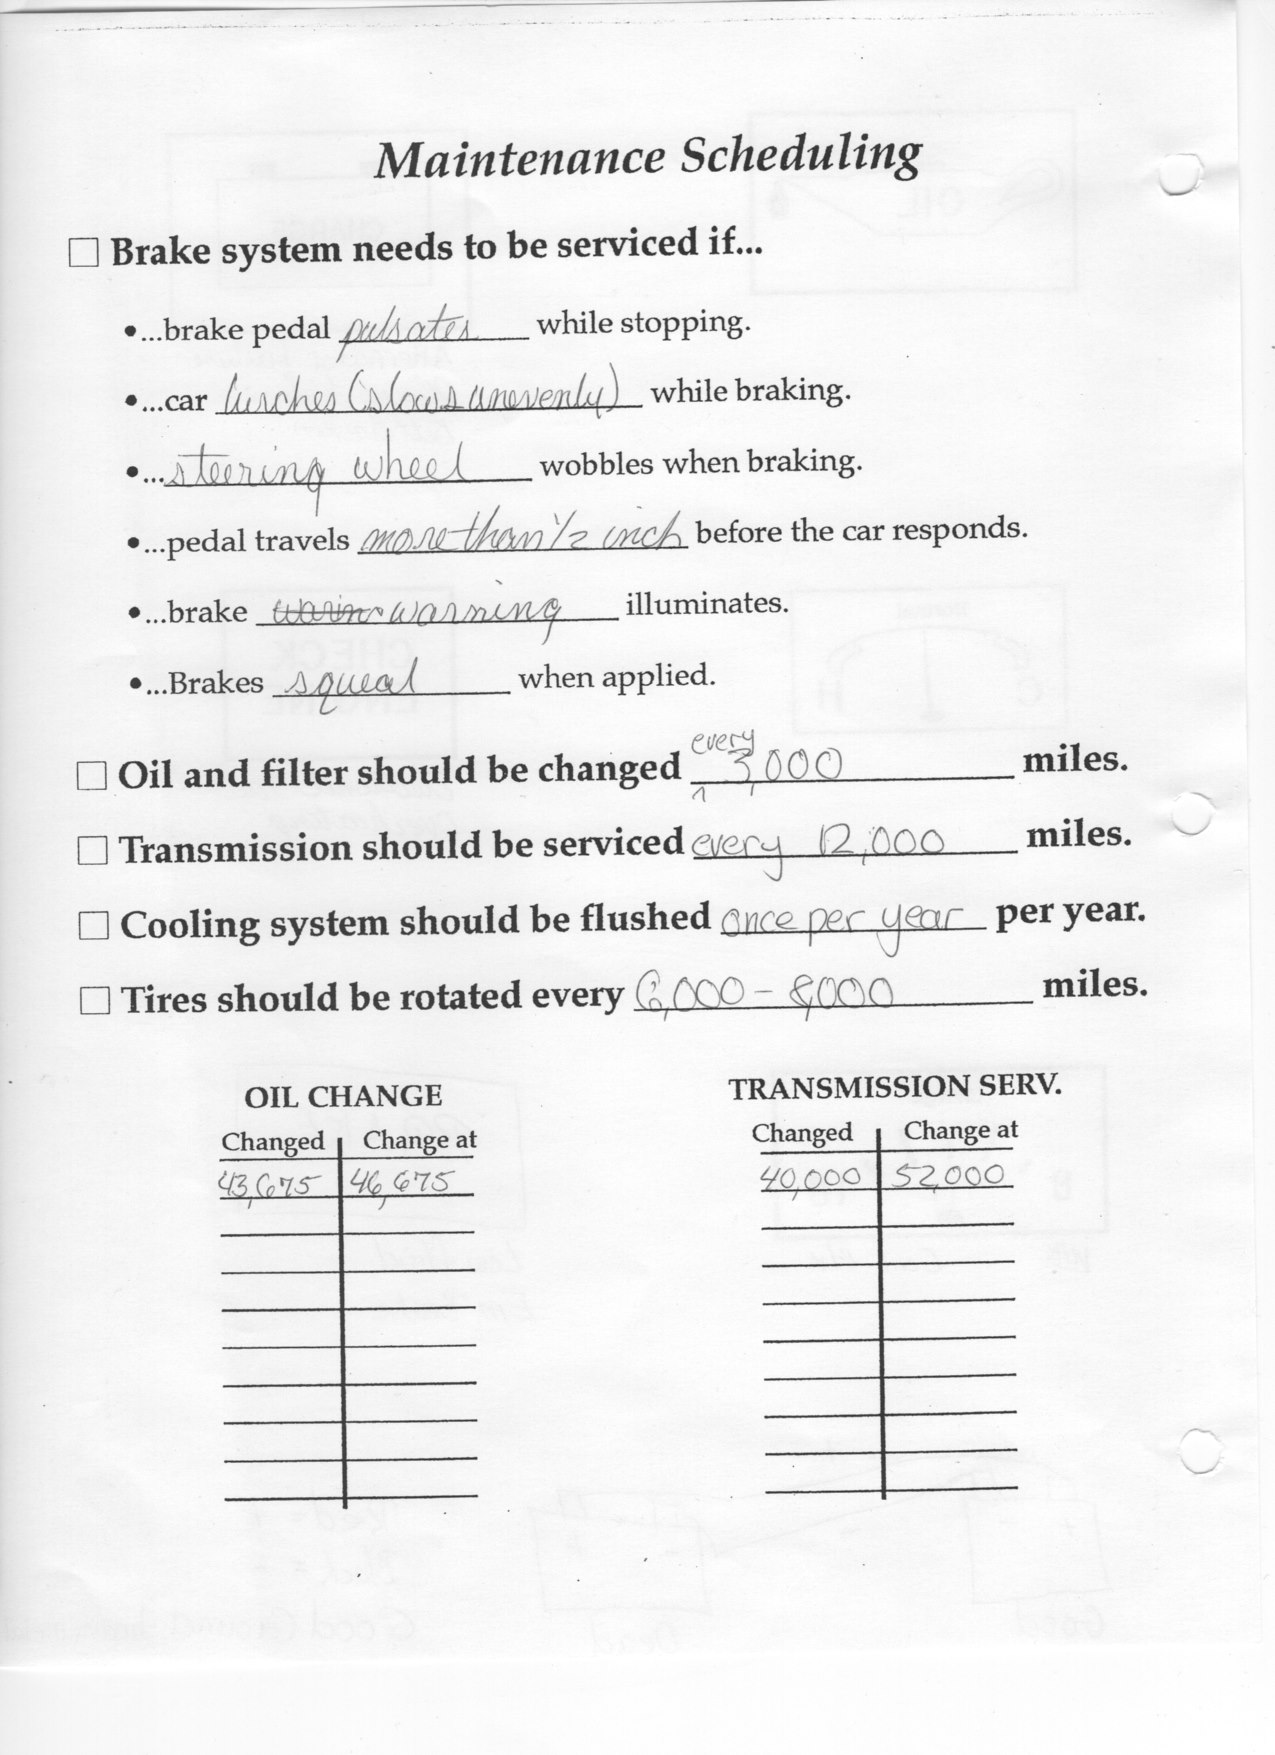 Maintenance Scheduling
☐ Brake system needs to be serviced if...
•...brake pedal pulsates while stopping.
•...car lurches (slows unevenly) while braking.
•...steering wheel wobbles when braking.
•...pedal travels more than 1/2 inch before the car responds.
•...brake warin warning illuminates.
•...Brakes squeal when applied.
☐ Oil and filter should be changed every 3,000 miles.
☐ Transmission should be serviced every 12,000 miles.
☐ Cooling system should be flushed once per year per year.
☐ Tires should be rotated every 6,000 - 8,000 miles.
OIL CHANGE TRANSMISSION SERV.
Changed Change at Changed Change at
43,675 46,675 40,000 52,000